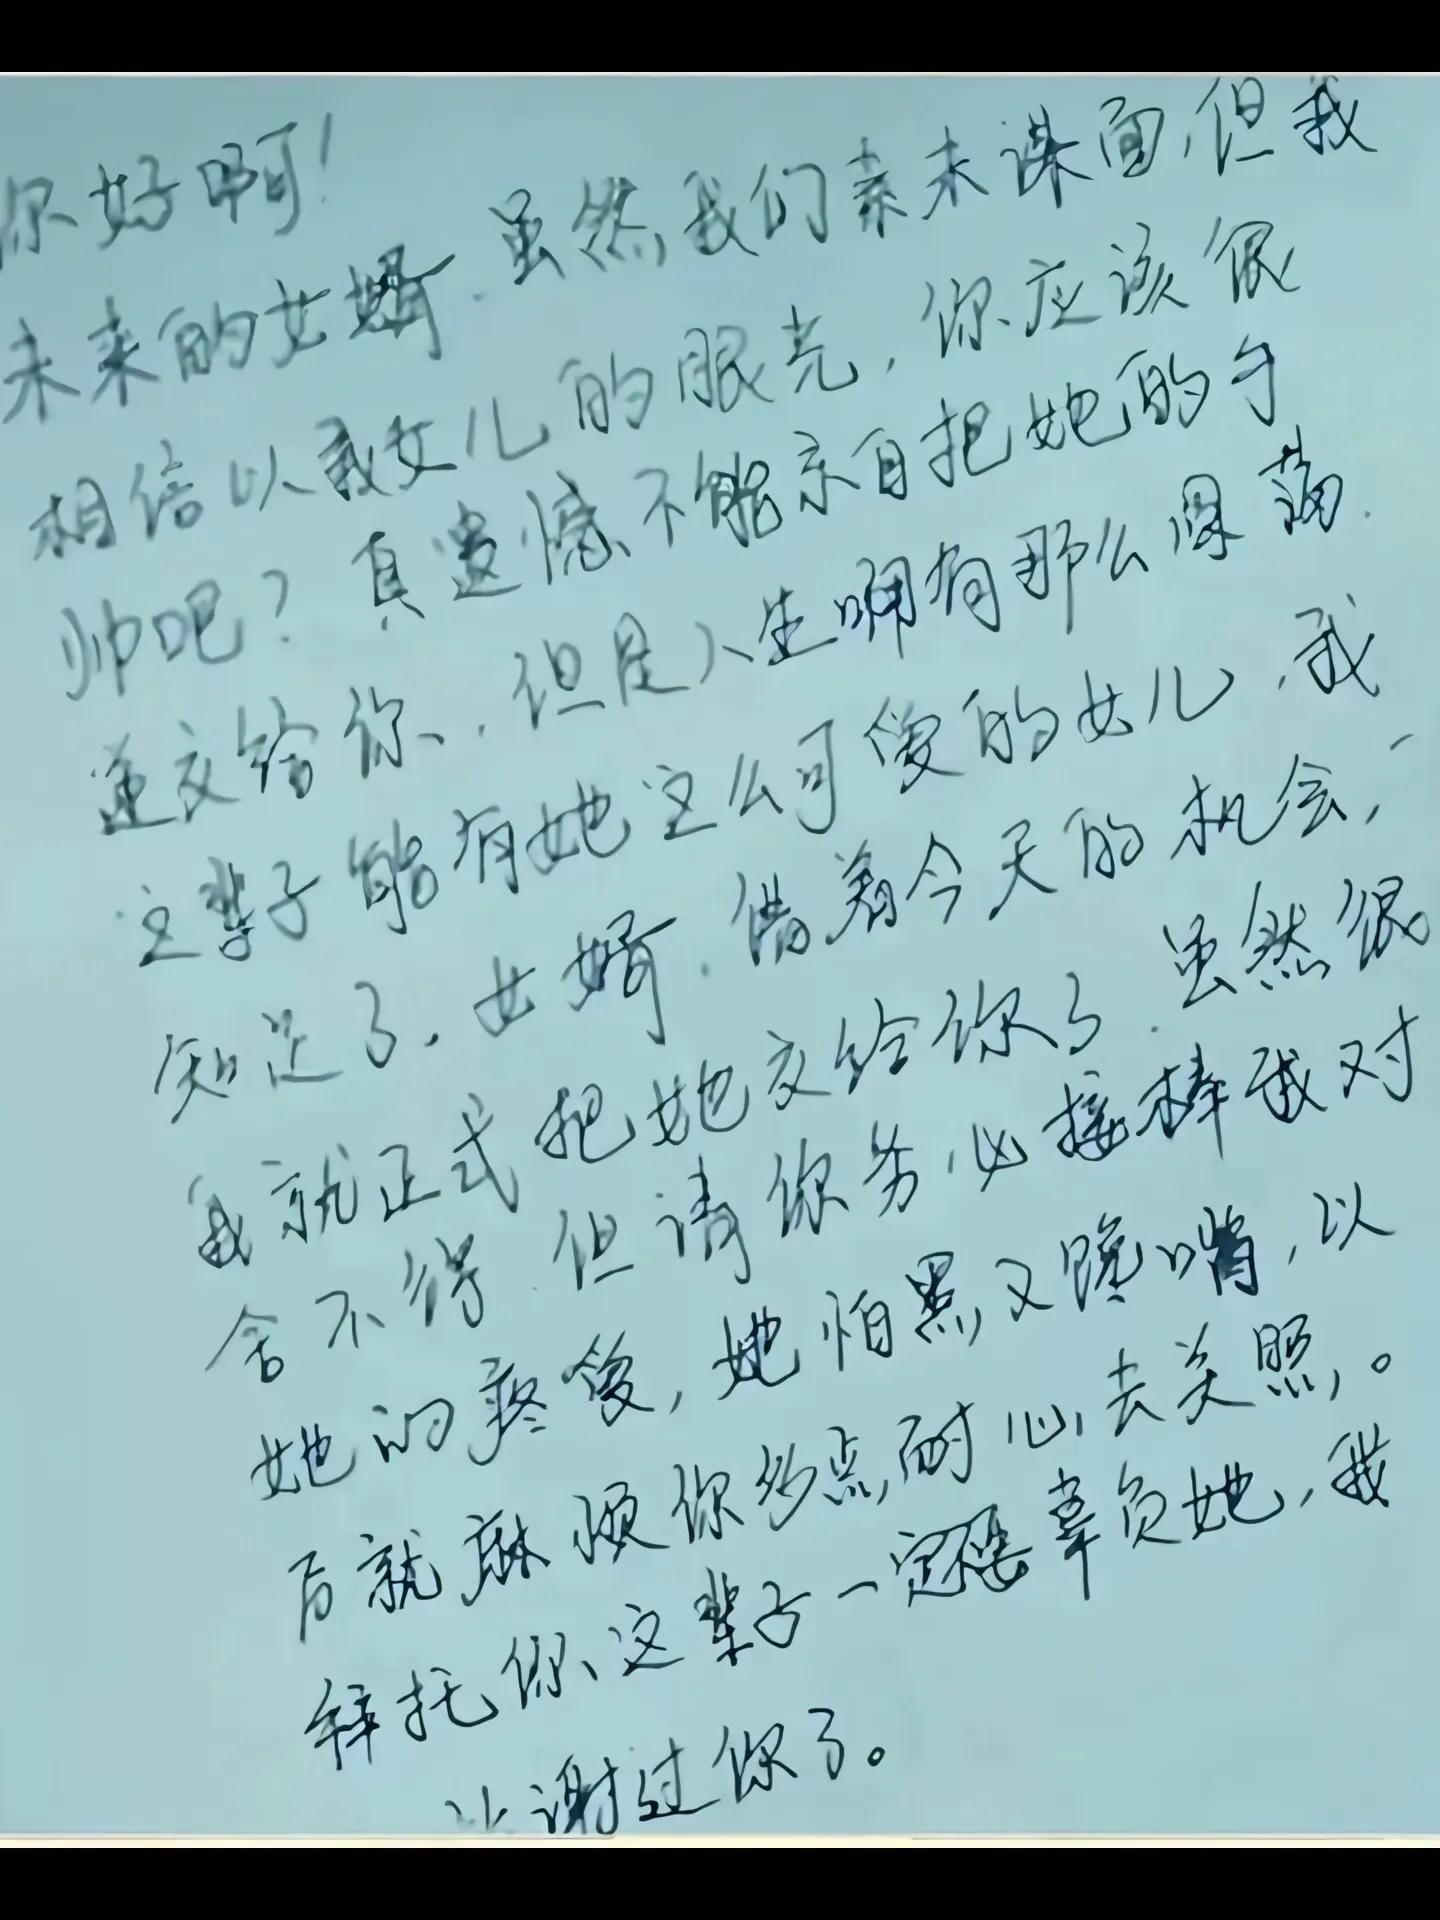 你好啊！
未来的女婿.虽然,我们素未谋面,但我
相信以我女儿的眼光,你应该很
帅吧？真遗憾不能亲自把她的手
递交给你.但是人生哪有那么圆满.
这辈子能有她这么可爱的女儿,我
知足了.女婿.借着今天的机会,
我就正式把她交给你了.虽然很
舍不得.但请你务必接棒我对
她的疼爱,她怕黑又哮喘,以
后就麻烦你多点耐心去关照。
拜托你这辈子一定不要辜负她,我
谢过你了。